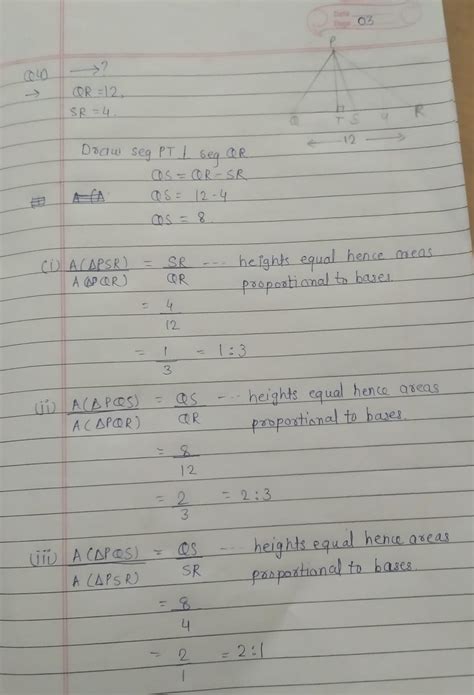 Date
Page 03
Q4) → ?
→ QR = 12,
SR = 4.
P
Q T S 4 R
12
Draw seg PT ⊥ seg QR
QS = QR - SR
QS = 12 - 4
QS = 8.
(i) A(ΔPSR) / A(ΔPQR) = SR / QR ---- heights equal hence areas
proportional to bases.
= 4 / 12
= 1 / 3 = 1 : 3
(ii) A(ΔPQS) / A(ΔPQR) = QS / QR ---- heights equal hence areas
proportional to bases.
= 8 / 12
= 2 / 3 = 2 : 3
(iii) A(ΔPQS) / A(ΔPSR) = QS / SR ---- heights equal hence areas
proportional to bases.
= 8 / 4
= 2 / 1 = 2 : 1